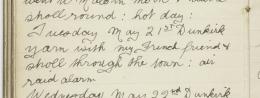 stroll round: hot day:
Tuesday May 21st Dunkirk
yarn with my French friend &
stroll through the town: air
raid alarm
Wednesday May 22nd Dunkirk